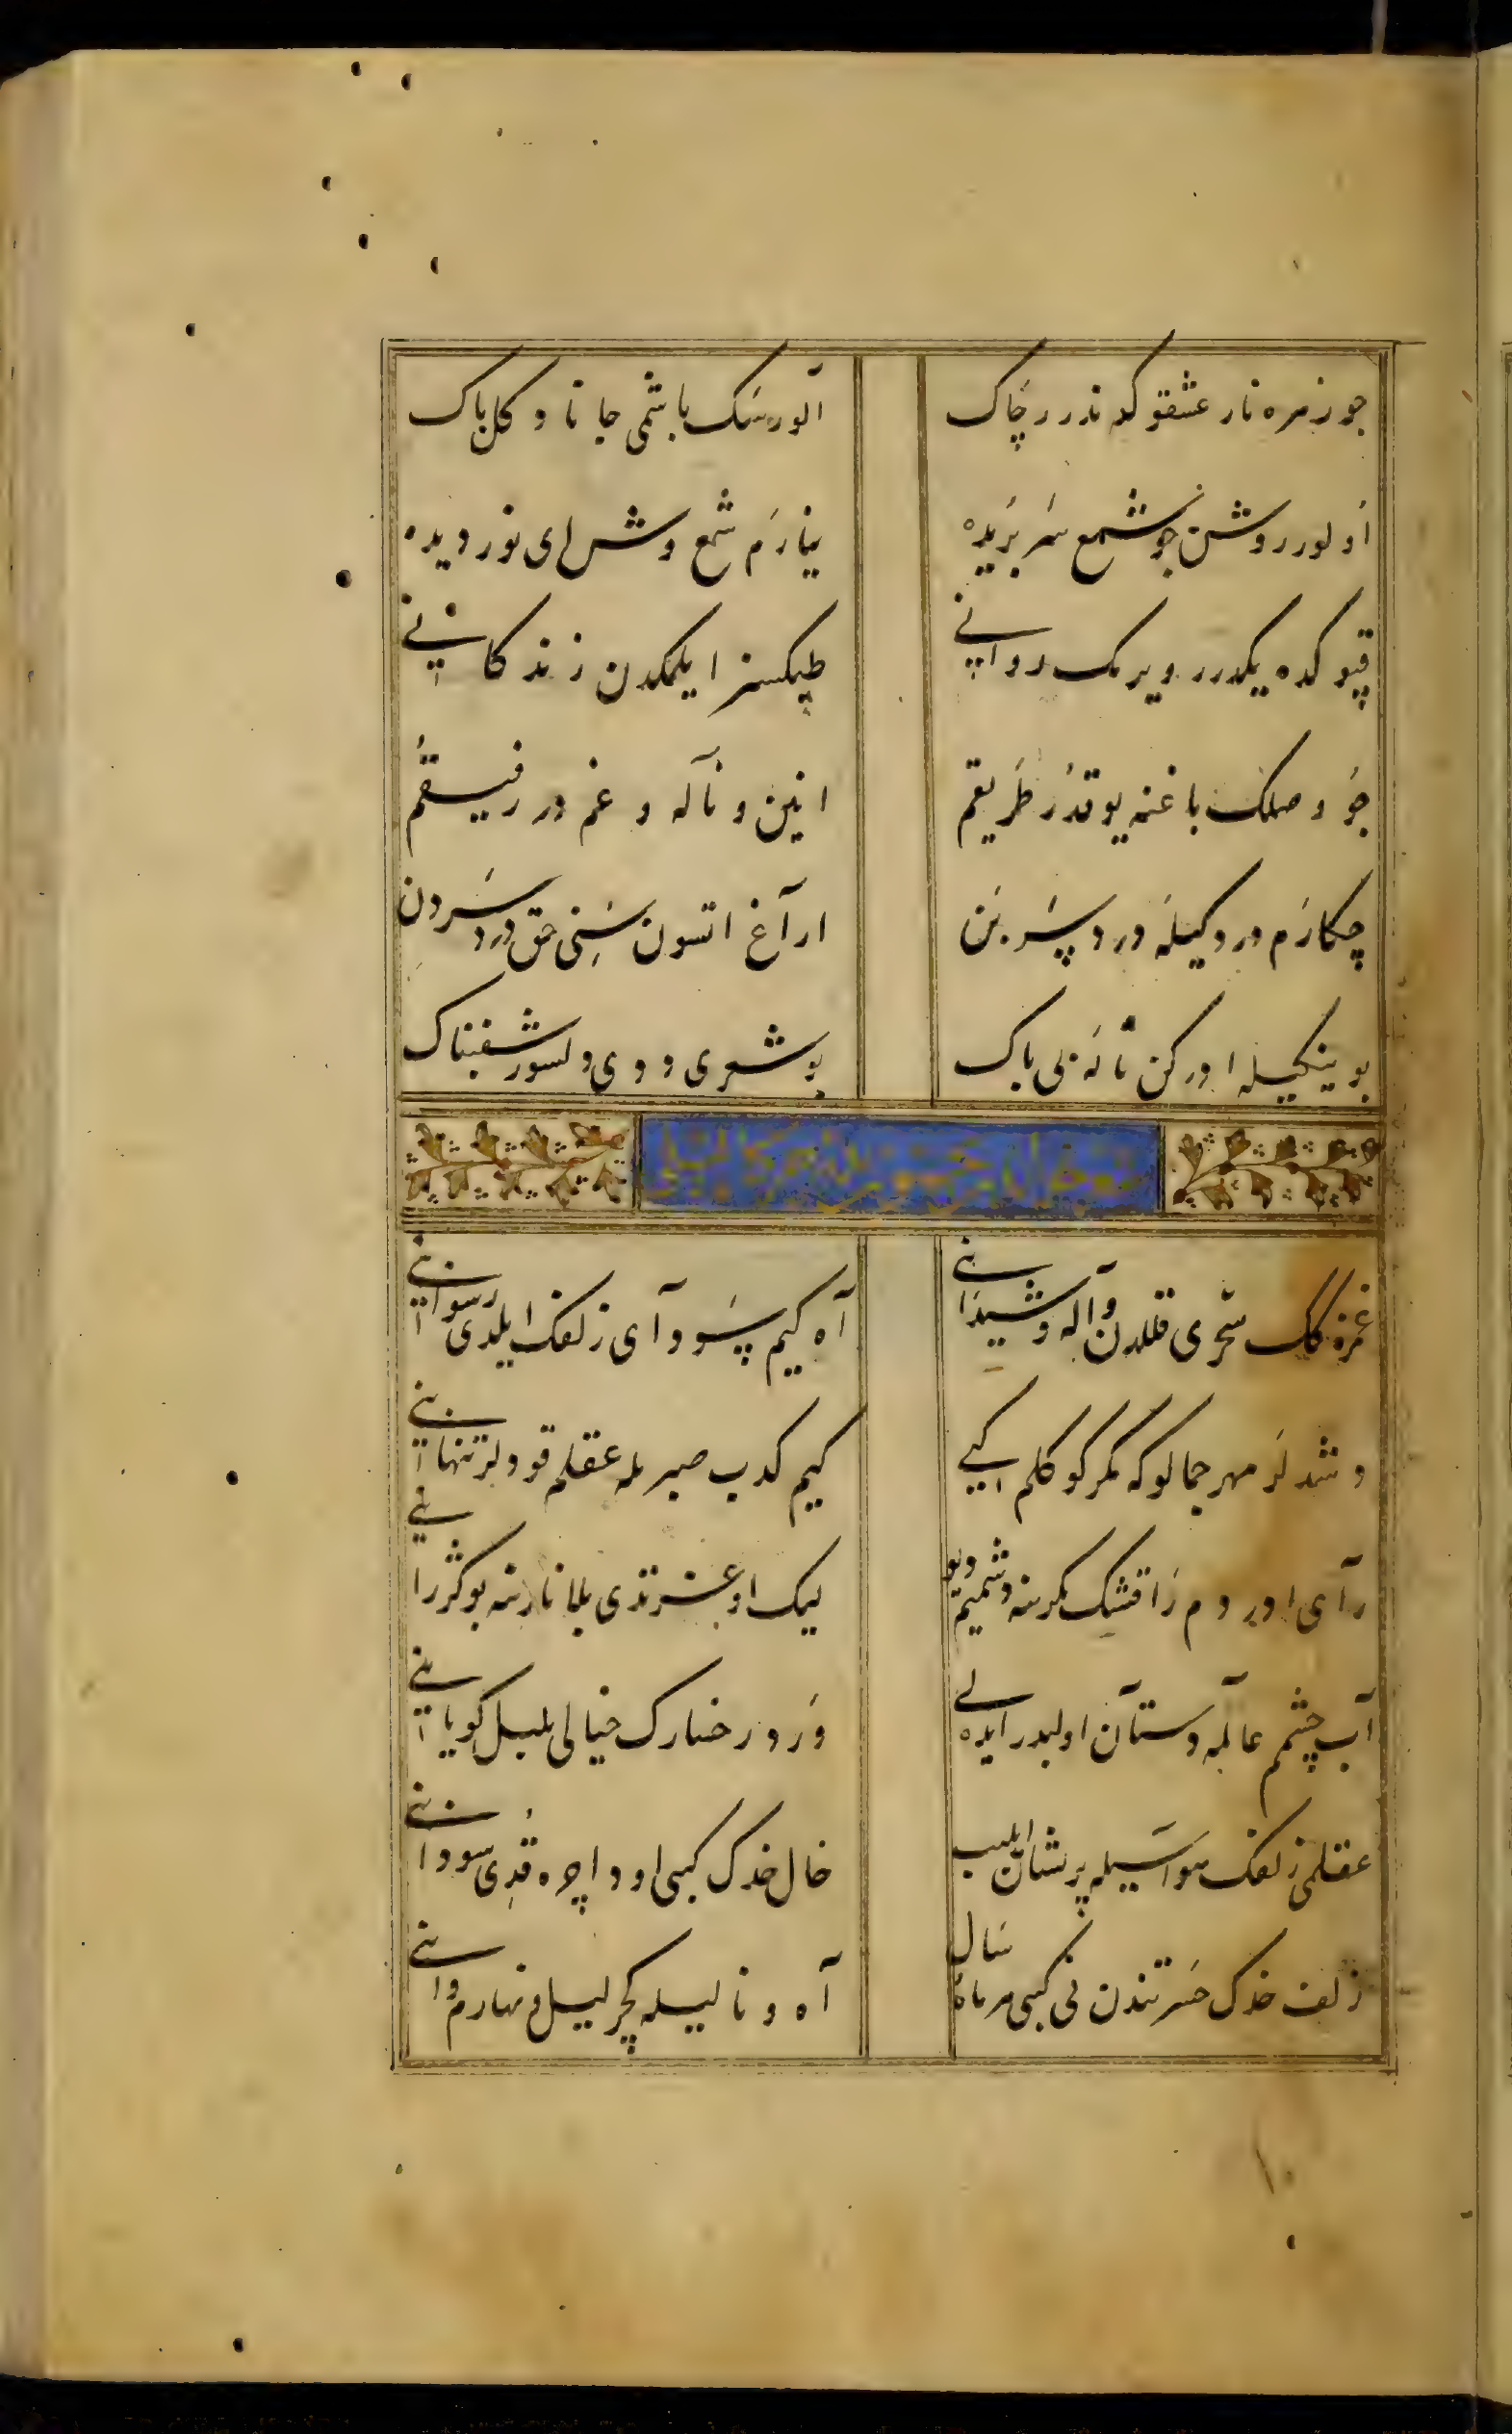 چو زمره نار عشقوکدندر چاک
آلورسک باشمی جانا دکل باک
اولور روشن چو شمع سر بریده
ینارم شمع وش ای نور دیده
قپوکده یکدرر ویرمک روانی
طپکسز ایلمکدن زندکانی
چو وصلک باغنه یوقدر طریقم
انین و ناله و غم در رفیقم
چکارم درد کیله درد سر بن
ایراغ اتسون سنی حق درد سردن
بو ینکیله اورکن ناله بی باک
بو شعری دودی دلسوز شغبناک
غمزه کک سحری قللدن واله و شیدا بنی
آه کیم سودای زلفک ایلدی رسوا بنی
دشدلر مهر جمالوکه مکر کوکلم ایکی
کیم کدب صبریله عقلم قودلر تنها بنی
رآی اوردم زاقشک مکرنه دشمیم دیو
لیک اوغرتدی بلا نارنه بوکژ را بنی
آب چشمم عالمه دستان اولبدر ایده لی
ورد رخسارک خیالی بلبل کویا بنی
عقلمی زلفک هواسیله پریشان ایلیب
خال خدک کبی اود اچره قدی سودا بنی
زلف خدک حسرتندن نی کبی هر ماه سال
آه و نالیسله کچر لیل و نهارم وا بنی